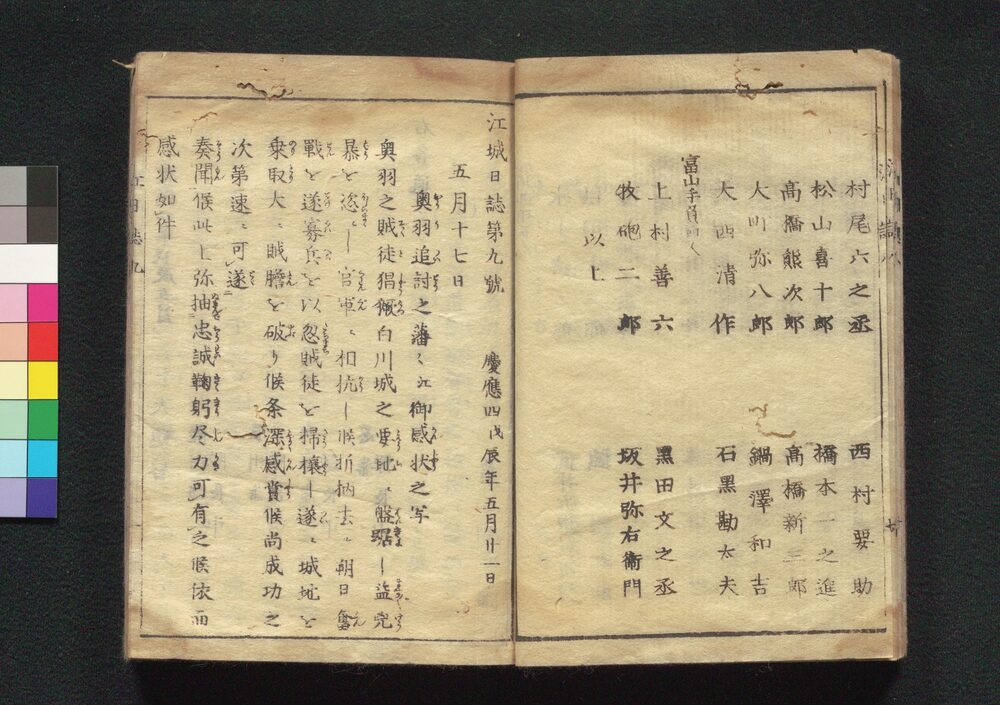 村尾六之丞 西村要助
松山喜十郎 橋本一之進
高橋熊次郎 高橋新三郎
大町弥八郎 鍋澤和吉
大西清作 石黒勘太夫
富山手負
上村善六 黒田文之丞
牧砲二郎 坂井弥右衛門
以上
江城日誌第九號 慶應四戊辰年五月廿一日
五月十七日
奥羽追討之藩々江御感状之写
奥羽之賊徒猖獗白川城之要地ニ盤踞シ益兇
暴を恣ニシ官軍ニ相抗シ候折柄去ル朔日
戦を遂寡兵を以忽賊徒を掃攘シ遂ニ城地を
乗取大ニ賊膽を破り候条深感賞候尚成功之
次第速ニ可遂
奏聞候此上弥抽忠誠鞠躬尽力可有之候依而
感状如件